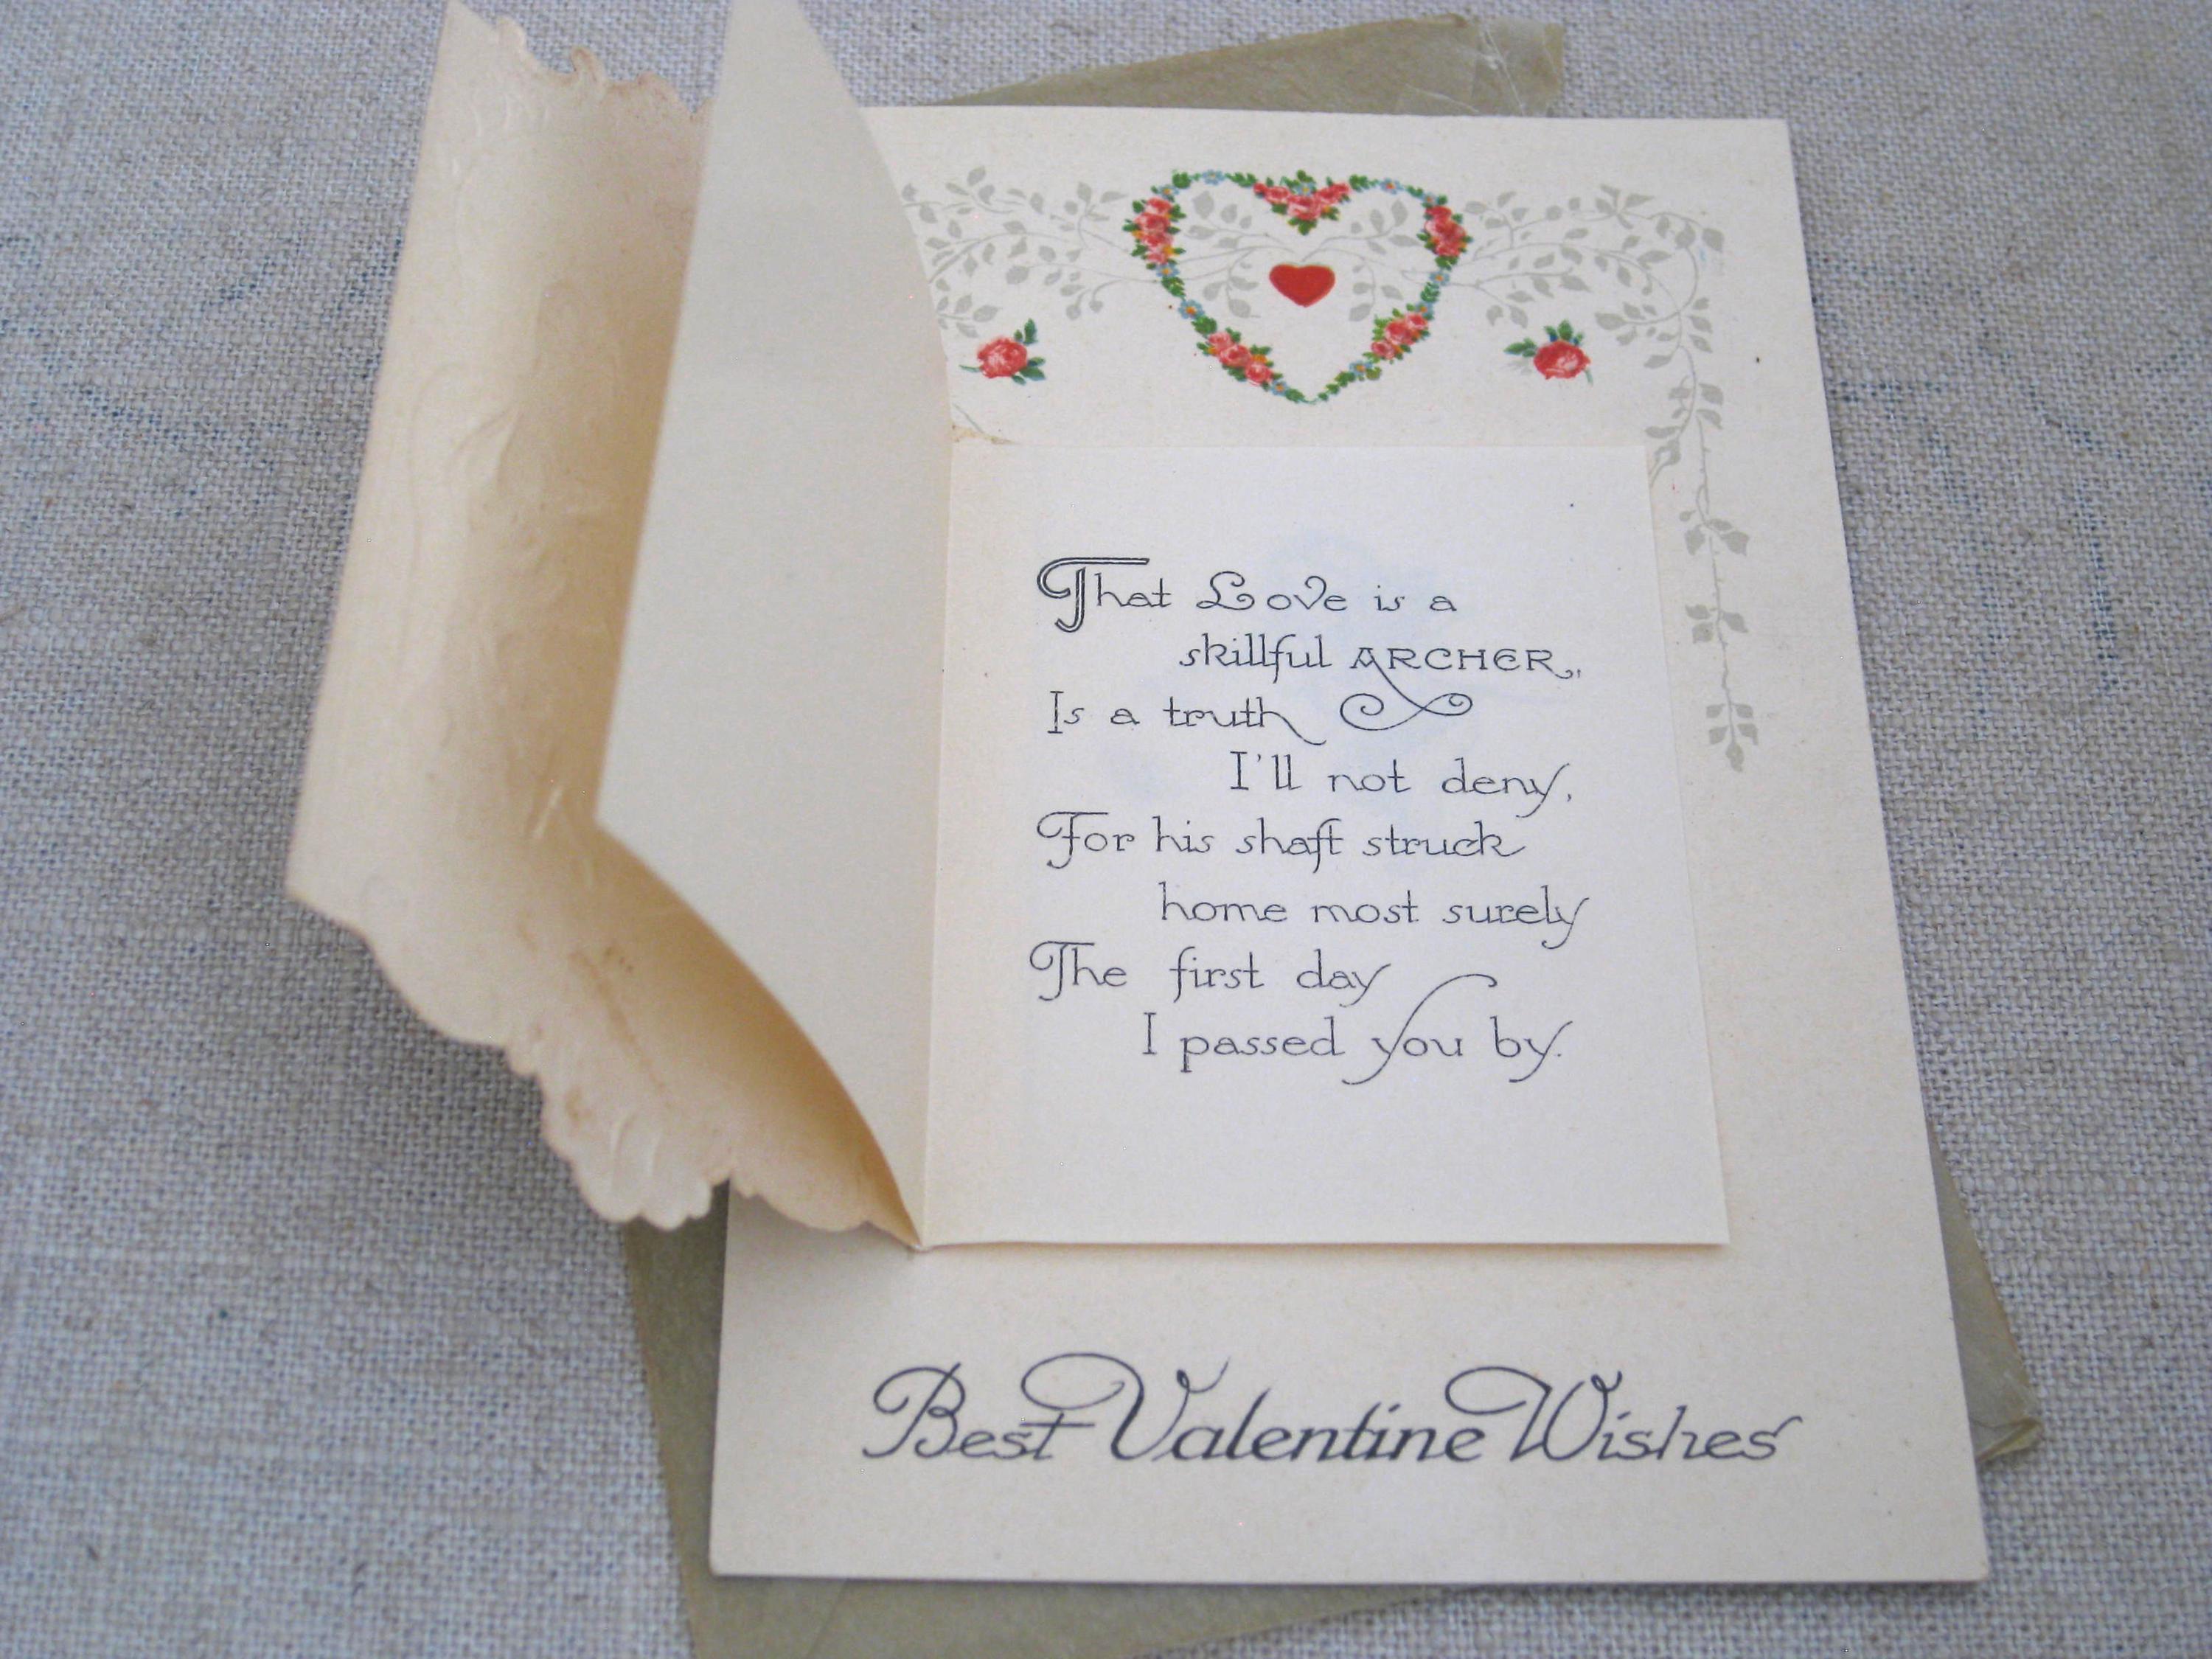 That Love is a
skillful ARCHER,
Is a truth
I'll not deny,
For his shaft struck
home most surely
The first day
I passed you by.
Best Valentine Wishes